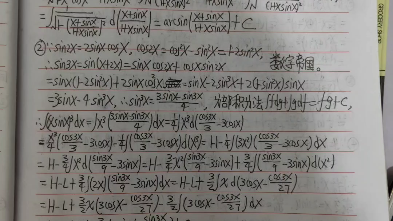 = ∫ 1/√(1-[(x+sinx)/(1+xsinx)]²) d[(x+sinx)/(1+xsinx)] = arcsin[(x+sinx)/(1+xsinx)] + C
②∵sin2x=2sinxcosx, cos2x=cos²x-sin²x=1-2sin²x,
∴sin3x=sin(x+2x)=sinxcos2x+cosxsin2x 数学帝国。
=sinx(1-2sin²x)+2sinxcos²x=sinx-2sin³x+2(1-sin²x)sinx
=3sinx-4sin³x, ∴sin³x=(3sinx-sin3x)/4,
∴∫(xsinx)³dx=∫x³(3sinx-sin3x)/4 dx=1/4∫x³d(cos3x/3-3cosx)
=x³/4(cos3x/3-3cosx)-1/4∫(cos3x/3-3cosx)d(x³)=H-1/4∫(3x²)(cos3x/3-3cosx)dx
=H-3/4∫x²d(sin3x/9-3sinx)=H-3/4x²(sin3x/9-3sinx)+3/4∫(sin3x/9-3sinx)d(x²)
=H-L+3/4∫(2x)(sin3x/9-3sinx)dx=H-L+3/2∫xd(3cosx-cos3x/27)
=H-L+3/2x(3cosx-cos3x/27)-3/2∫(3cosx-cos3x/27)dx